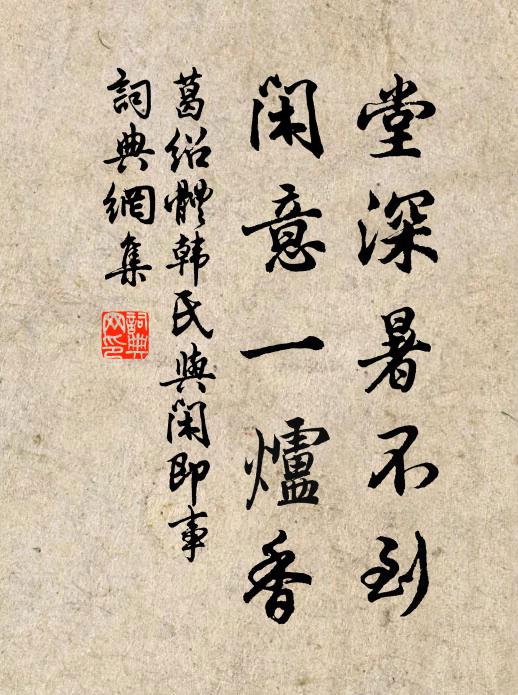 堂深暑不到
閑意一爐香
葛紹體韩氏與閑即事
詞典網集
詞典網印